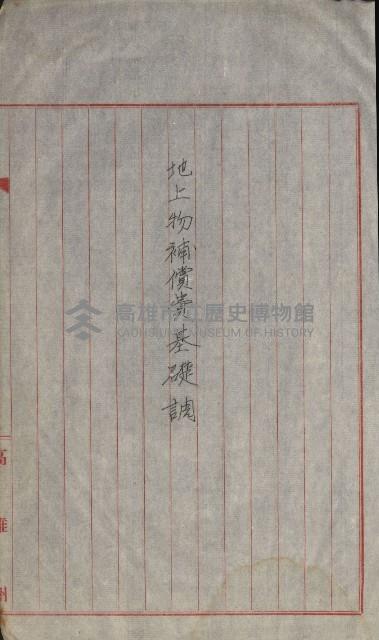 地上物補償費基礎調
高雄市立歷史博物館
KAOHSIUNG MUSEUM OF HISTORY
高雄州